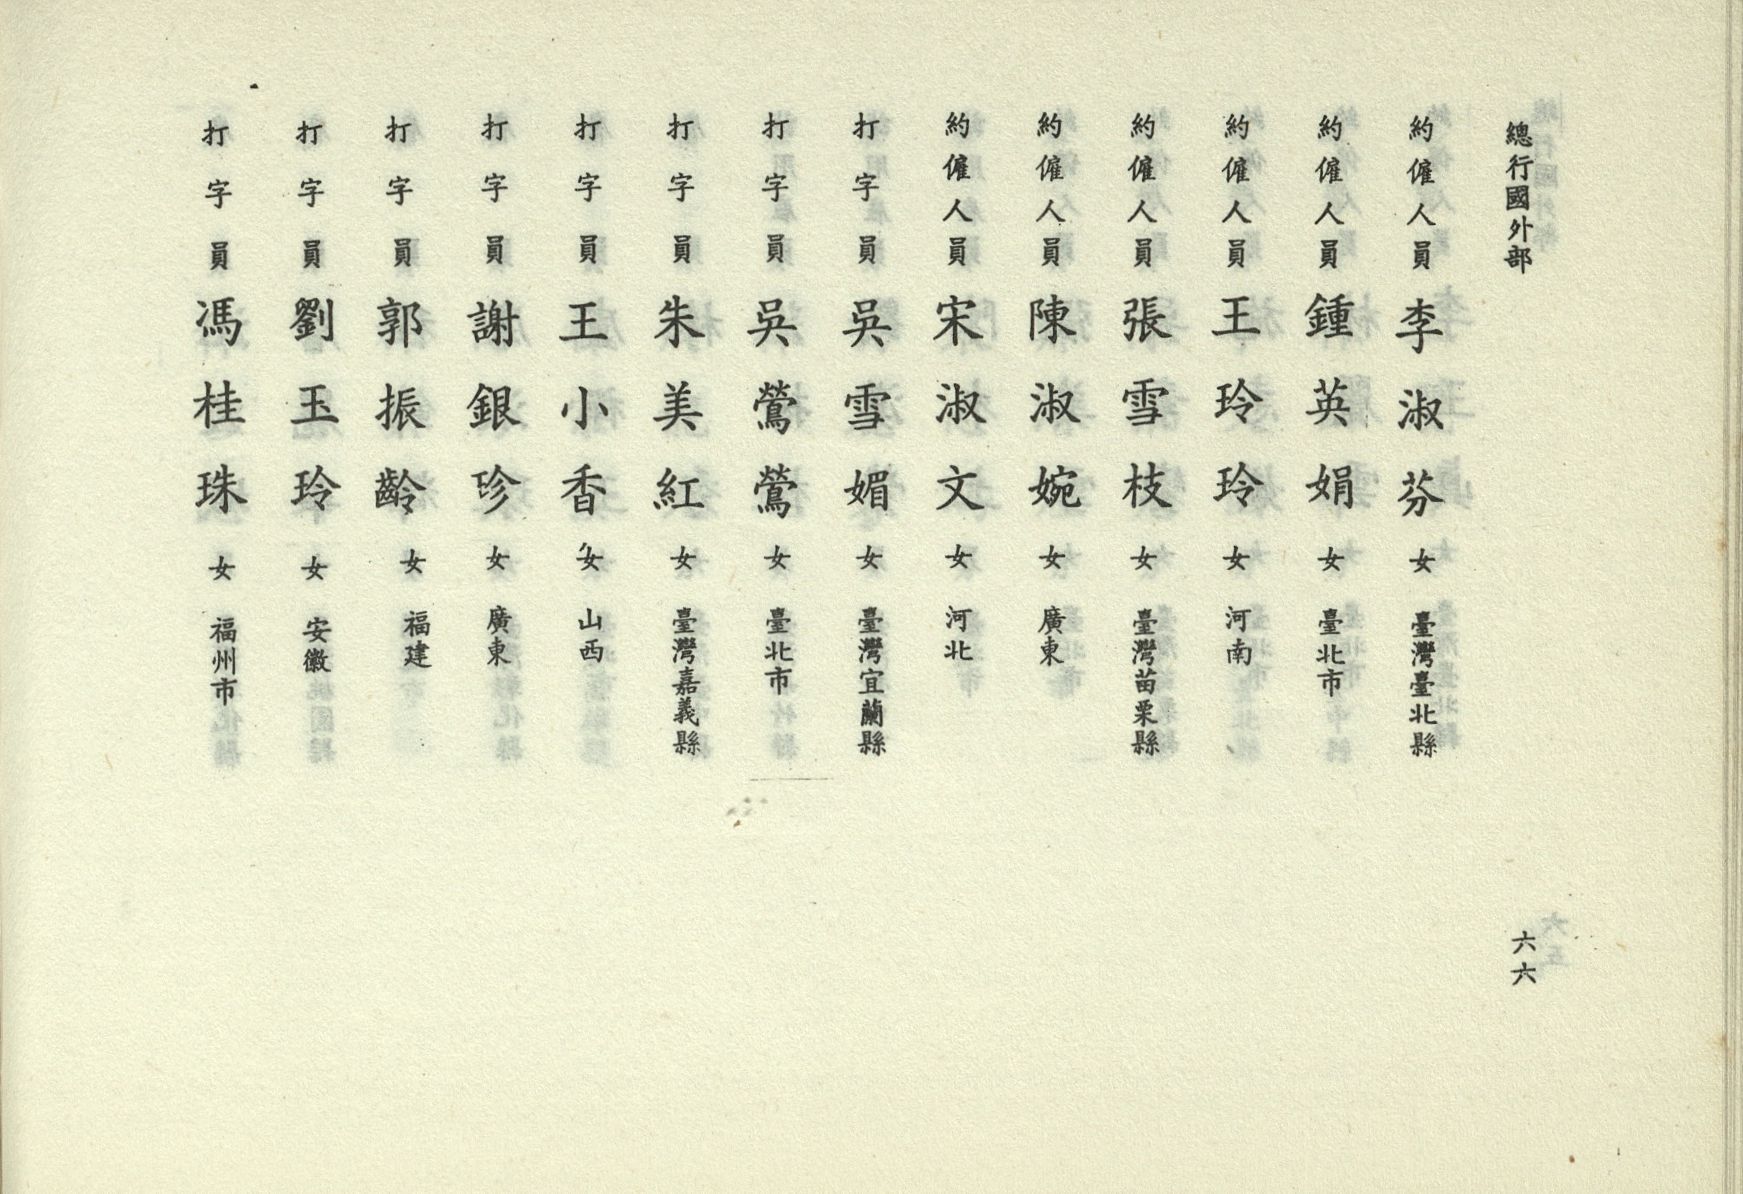 總行國外部
六六
約僱人員 李淑芬 女 臺灣臺北縣
約僱人員 鍾英娟 女 臺北市
約僱人員 王玲玲 女 河南
約僱人員 張雪枝 女 臺灣苗栗縣
約僱人員 陳淑婉 女 廣東
約僱人員 宋淑文 女 河北
打字員 吳雪媚 女 臺灣宜蘭縣
打字員 吳鶯鶯 女 臺北市
打字員 朱美紅 女 臺灣嘉義縣
打字員 王小香 女 山西
打字員 謝銀珍 女 廣東
打字員 郭振齡 女 福建
打字員 劉玉玲 女 安徽
打字員 馮桂珠 女 福州市